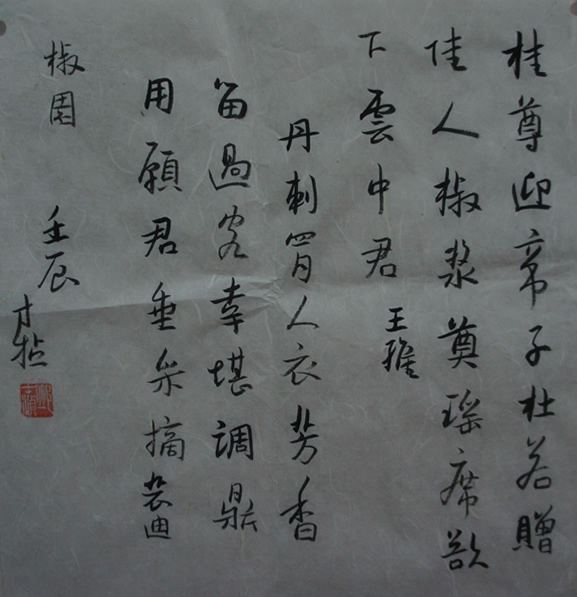 桂尊迎帝子杜若贈
佳人椒漿奠瑤席欲
下雲中君 王維
丹刺罥人衣芳香
留過客幸堪調鼎
用願君垂采摘 裴迪
椒園
壬辰